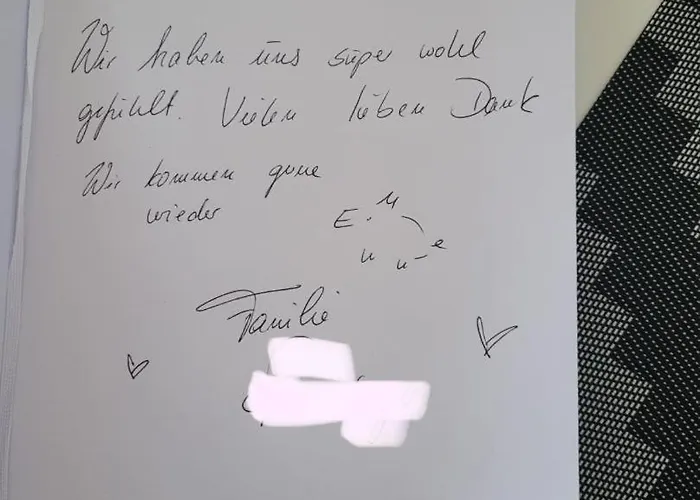 Wir haben uns super wohl
gefühlt. Vielen lieben Dank
Wir kommen gerne
wieder
Familie